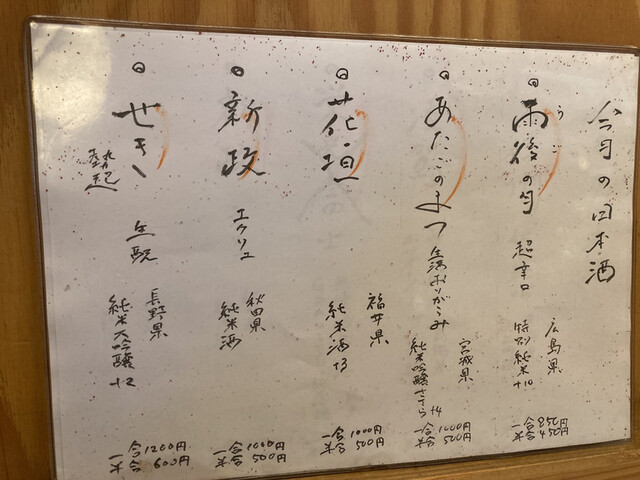 今月の日本酒
雨後の月
うご
超辛口
広島県
特別純米+10
一合 850円
半合 450円
あたごのまつ
生酒おりがらみ
宮城県
純米吟醸ささら+4
一合 1000円
半合 500円
花垣
福井県
純米酒+3
一合 1000円
半合 500円
新政
エクリュ
秋田県
純米酒
一合 1000円
半合 500円
せきㇸ
生酛
長野県
純米大吟醸+2
一合 1200円
半合 600円